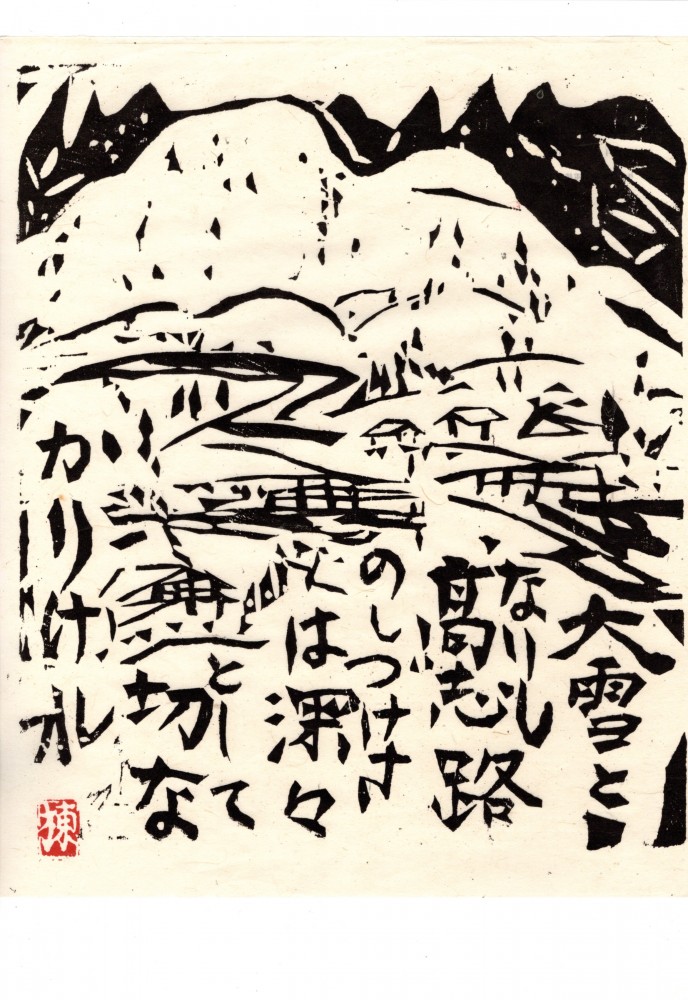 大雪と
なりし
高志路
のしつけさ
は深々
として
切な
かりけれ
棟